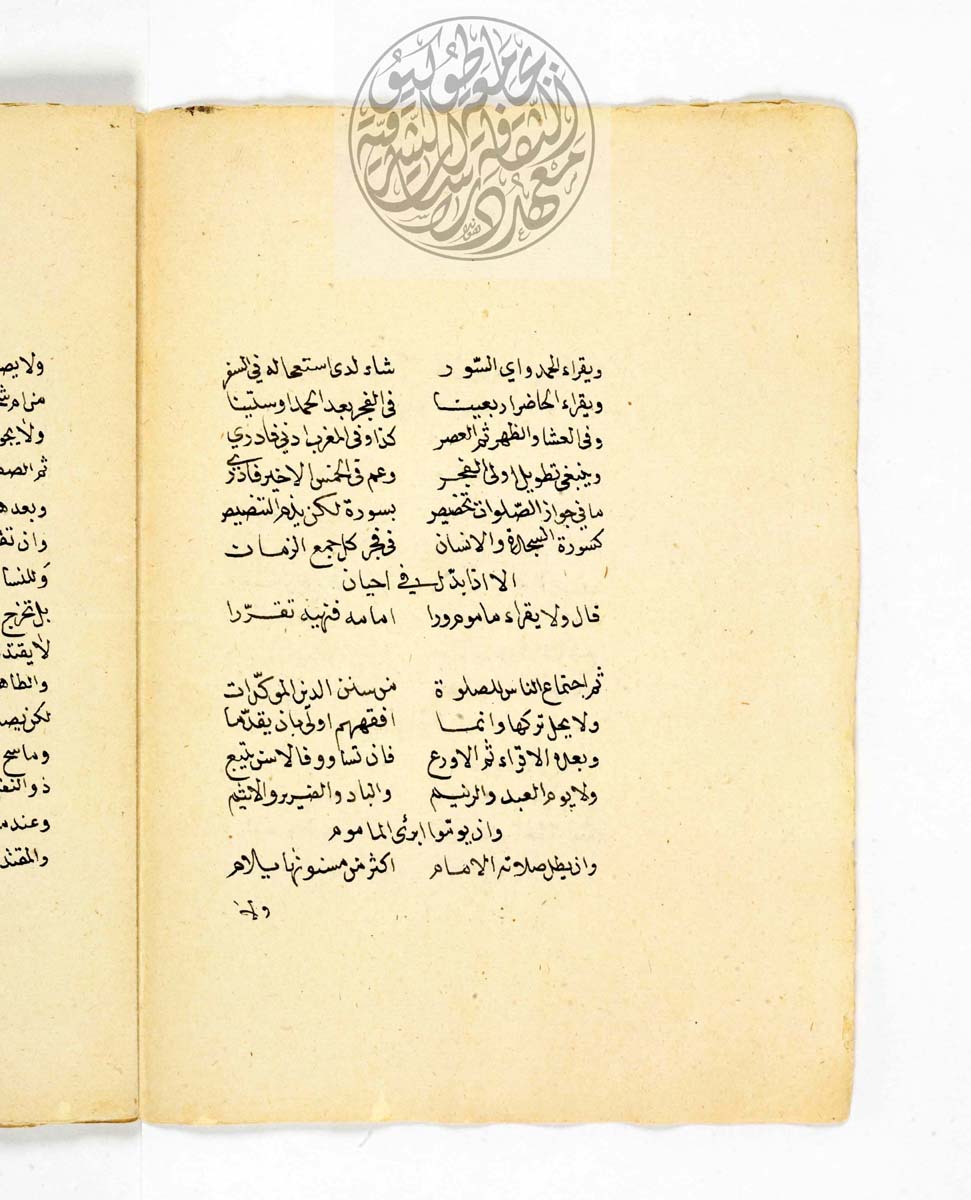 ويقراء الحمد واي السّور شاء لدى استعجاله في السفر
ويقراء الحاضر اربعينا في الفجر بعد الحمد او ستينا
وفي العشا والظهر ثم العصر كذا وفي المغرب ادنى فادري
وينبغي تطويل اولى الفجر وعم في الخمس الاخير فادري
ما في جواز الصّلوات تخصيص بسورة لكن يذم التنصيص
كسورة السجدة والانسان في فجر كل جمع الزمان
الا اذا بذلك في احيان
قال ولا يقراء ماموم ورا امامه فنهيه تقرّرا
ثم اجتماع الناس للصلوة من سنن الدين الموكّدات
ولا يحل تركها وانما افقههم اولى بان يقدّما
وبعده الاقراء ثم الاورع فان تساووا فالاسن يتبع
ولا يوم العبد والزنيم والباد والضرير والاثيم
وان يوموا ابرئ الماموم
وان يطل صلاته الامام اكثر من مسنونها يلام
ولا
ولا يص
من ام
ولا يجو
ثم الص
وبعده
وان تق
وللنسا
بل تخرج
لا يقتد
والطاه
لكن يص
وماسح
ذو النف
وعند
والمقتد
معهد دراسات الثقافة الشرقية
جامعة طوكيو